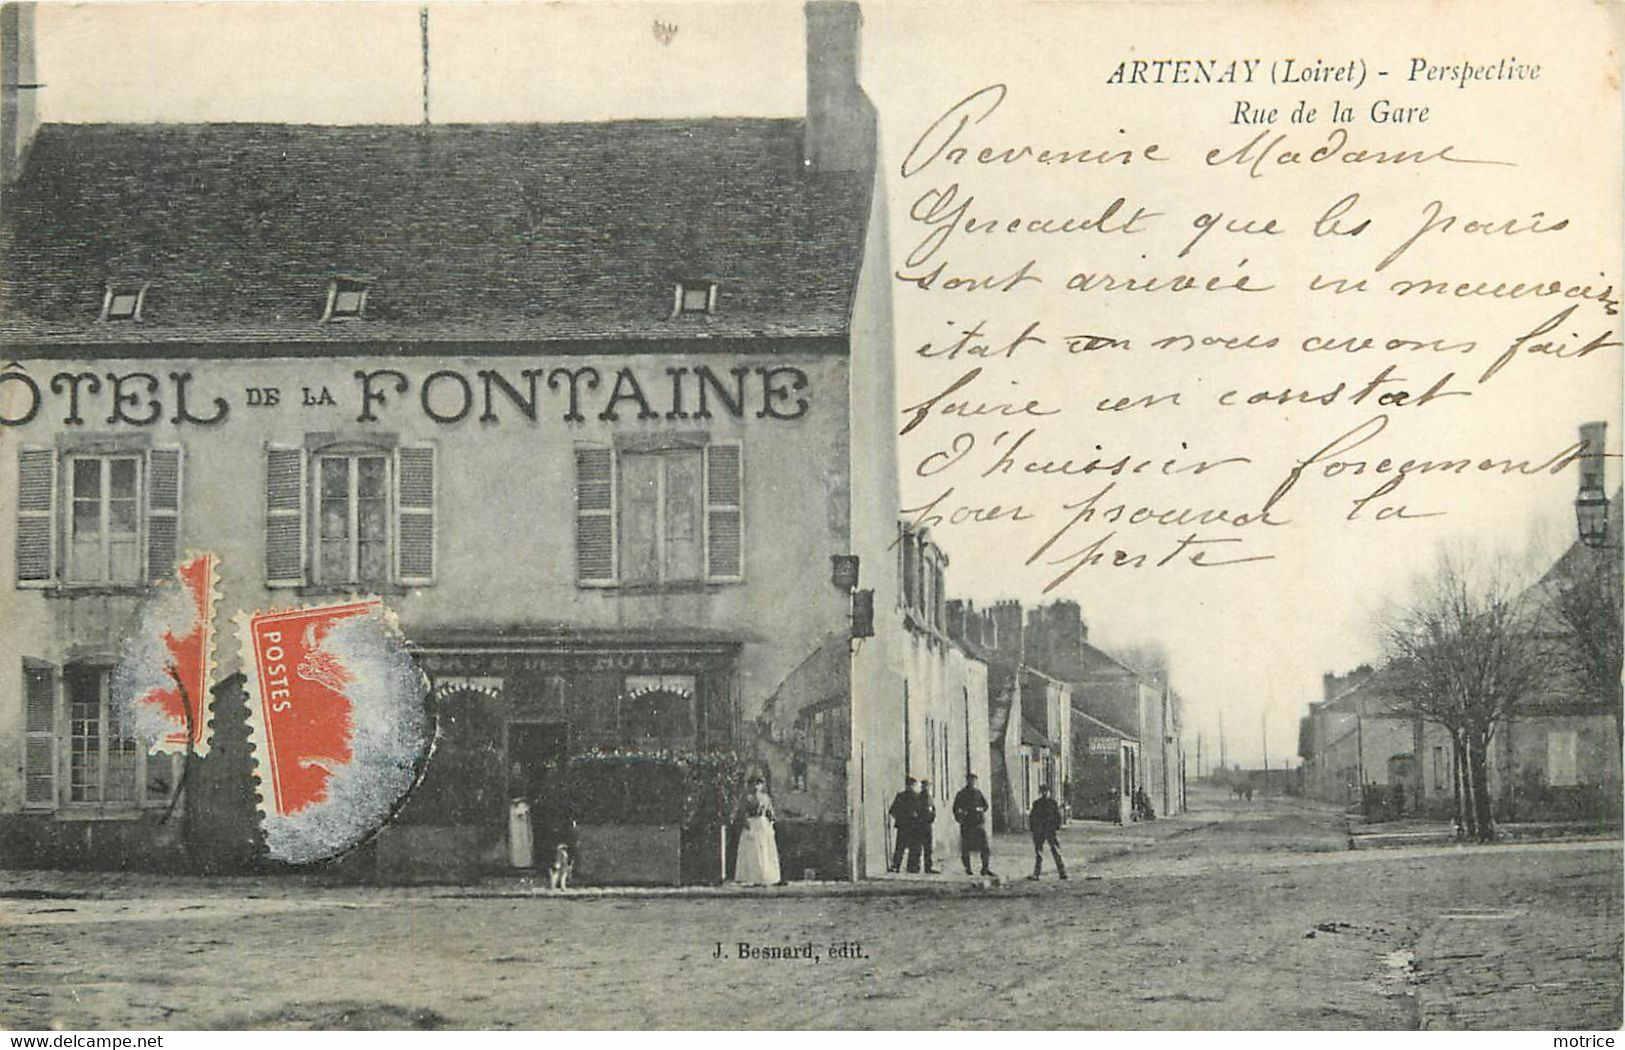 ARTENAY (Loiret) - Perspective
Rue de la Gare
Prevenire Madame
Gereault que les pairs
sont arrivée en mauvais
état un nous avons fait
faire un constat
d'huissier forcement
pour prouver la
perte
ÔTEL DE LA FONTAINE
POSTES
CAFÉ DE L'HOTEL
J. Besnard, édit.
www.delcampe.net
motrice